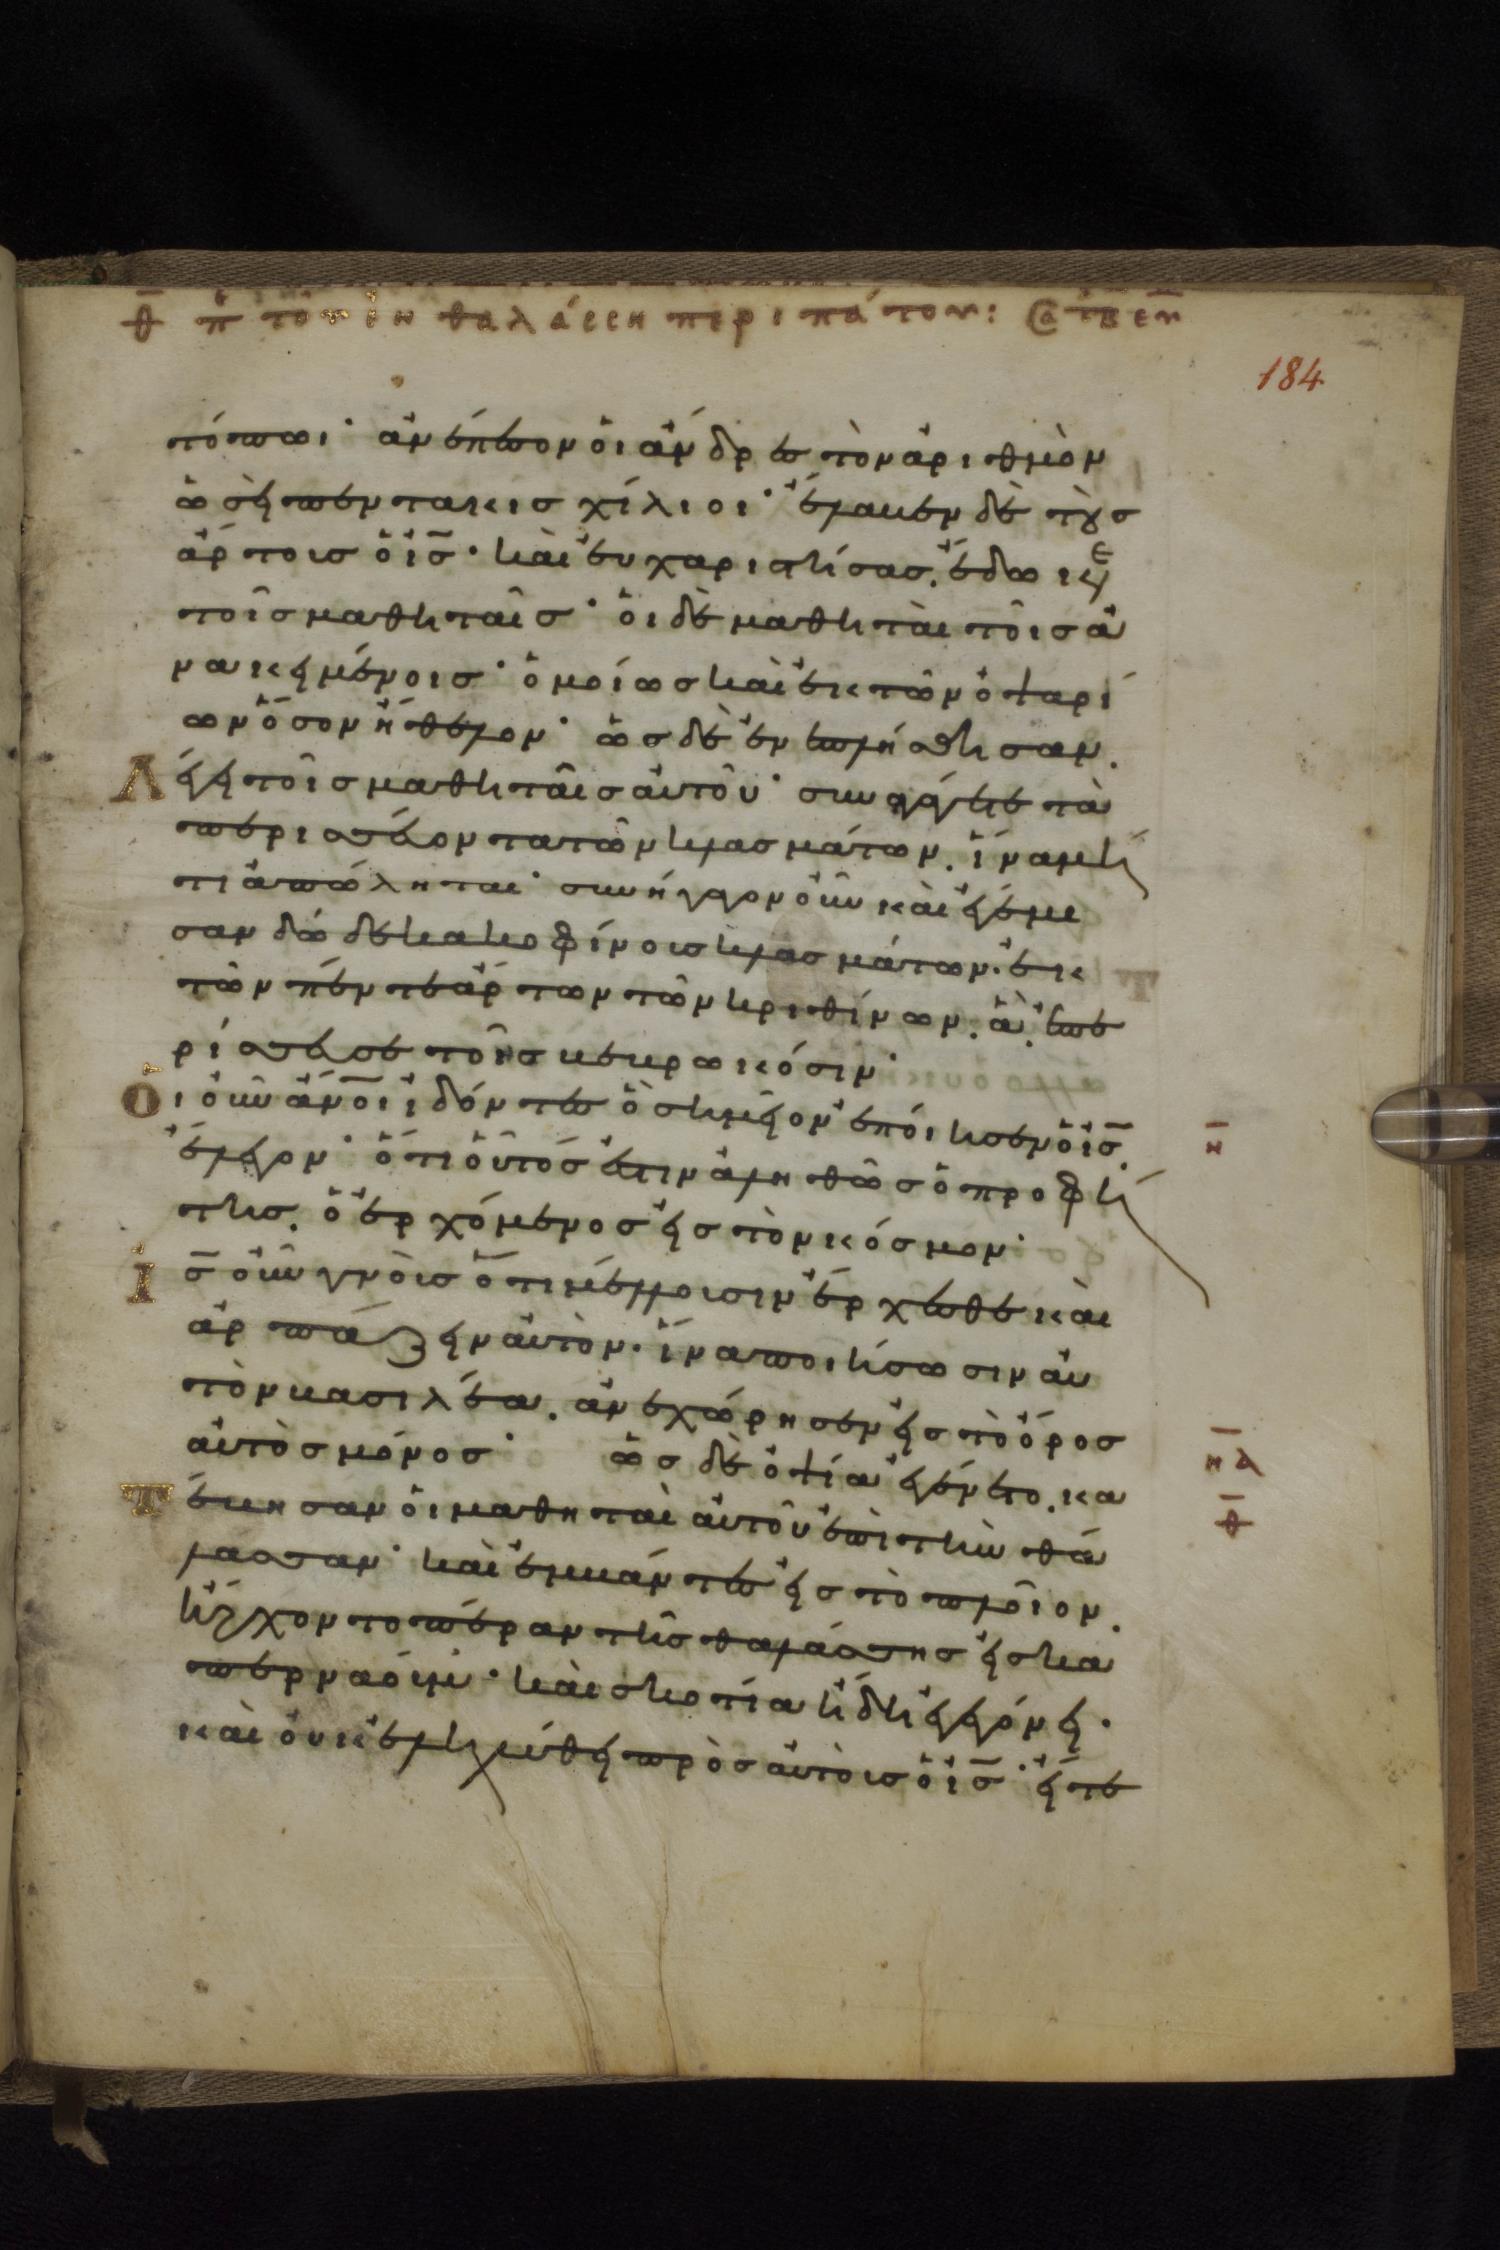 θ̄ π τοῦ ἐν θαλάσση περιπάτου:
184
τόπωι· ἀνέπεσον ὁι ἄνδρες τὸν ἀριθμὸν
ὡσεὶ πεντακισχίλιοι· ἔλαβεν δὲ τοὺσ
ἄρτουσ ὁ ἰ̄σ̄· καὶ ἐυχαριστήσασ. ἔδωκε
τοῖσ μαθηταῖσ· ὁι δὲ μαθηταὶ τοῖσ ἀ
νακειμένοισ· ὁμοίωσ καὶ ἐκ τῶν ὀψαρί
ων ὅσον ἤθελον· ὡσ δὲ ἐνεπλήσθησαν.
Λέγει τοῖσ μαθηταῖσ ἀυτοῦ· συναγάγετε τὰ
περισσεύοντα τῶν κλασμάτων. ἵνα μή
τι ἀπόληται· συνήγαγον οὖν καὶ ἐγέμι
σαν δώδεκα κοφίνουσ κλασμάτων· ἐκ
τῶν πέντε ἄρτων τῶν κριθίνων. ἃ ἐπε
ρίσσευσε τοῖσ βεβρωκόσιν·
Ὁι οὖν ἄν̄οι ἰδόντες ὃ σημεῖον ἐποίησεν ὁ ἰ̄σ̄.
ἔλεγον· ὅτι οὗτόσ ἐστιν ἀληθῶσ ὁ προφή
τησ. ὁ ἐρχόμενοσ εἰσ τὸν κόσμον·
Ἰ̄σ̄ οὖν γνοὺσ ὅτι μέλλουσιν ἔρχεσθε καὶ
ἁρπάζειν ἀυτὸν· ἵνα ποιήσωσιν ἀυ
τὸν βασιλέα. ἀνεχώρησεν εἰσ τὸ ὄροσ
ἀυτὸσ μόνοσ· ὡσ δὲ ὀψία ἐγένετο. κα
Τέβησαν ὁι μαθηταὶ ἀυτοῦ ἐπὶ τὴν θά
λασσαν· καὶ ἐμβάντες εἰσ τὸ πλοῖον.
ἤρχοντο πέραν τῆσ θαλάσσησ εἰσ κα
περναούμ· καὶ σκοτία ἤδη ἐγεγόνει·
καὶ ὀυκ ἐληλύθει πρὸσ ἀυτοὺσ ὁ ἰ̄σ̄· ἥ τε